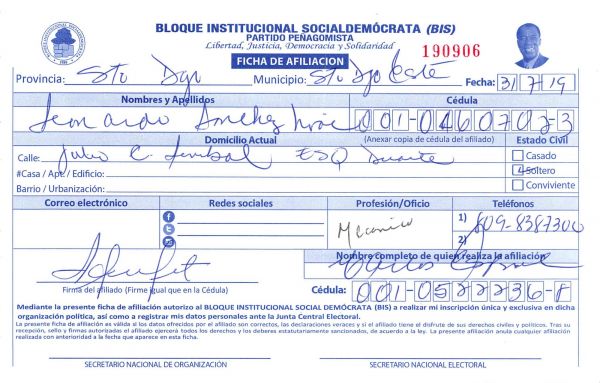 BLOQUE INSTITUCIONAL SOCIALDEMÓCRATA (BIS)
PARTIDO PEÑAGOMISTA
Libertad, Justicia, Democracia y Solidaridad
190906
FICHA DE AFILIACION
Provincia: Sto Dgo Municipio: Sto Dgo Este Fecha: 31/7/19
Nombres y Apellidos Cédula
Leonardo Sanchez 001-0460702-3
Domicilio Actual (Anexar copia de cédula del afiliado) Estado Civil
Calle: Julio C. ESQ Duarte Casado
#Casa / Apt / Edificio: Soltero
Barrio / Urbanización: Conviviente
Correo electrónico Redes sociales Profesión/Oficio Teléfonos
Mecanico 1) 809-8387300
2)
Nombre completo de quien realiza la afiliación
Carlos
Firma del afiliado (Firme igual que en la Cédula) Cédula: 001-0522236-8
Mediante la presente ficha de afiliación autorizo al BLOQUE INSTITUCIONAL SOCIAL DEMÓCRATA (BIS) a realizar mi inscripción única y exclusiva en dicha
organización política, así como a registrar mis datos personales ante la Junta Central Electoral.
La presente ficha de afiliación es válida si los datos ofrecidos por el afiliado son correctos, las declaraciones veraces y si el afiliado tiene el disfrute de sus derechos civiles y políticos. Tras su
recepción, sello y firmas autorizadas el afiliado ejercerá todos los derechos y los deberes estatutariamente sancionados, de acuerdo a la ley. La presente afiliación anula cualquier afiliación
realizada con anterioridad a la fecha que aparece en esta ficha.
SECRETARIO NACIONAL DE ORGANIZACIÓN SECRETARIO NACIONAL ELECTORAL